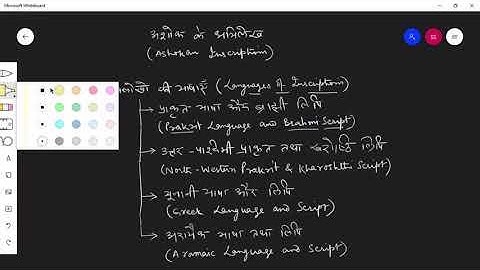 Microsoft Whiteboard
अशोक के अभिलेख
(Ashokan Inscription)
लेखों की भाषाएँ (Languages of Inscription)
प्राकृत भाषा और ब्राह्मी लिपि
(Prakrit Language and Brahmi Script)
उत्तर-पश्चिमी प्राकृत तथा खरोष्ठी लिपि
(North-Western Prakrit & Kharoshthi Script)
यूनानी भाषा और लिपि
(Greek Language and Script)
अरामैक भाषा तथा लिपि
(Aramaic Language and Script)